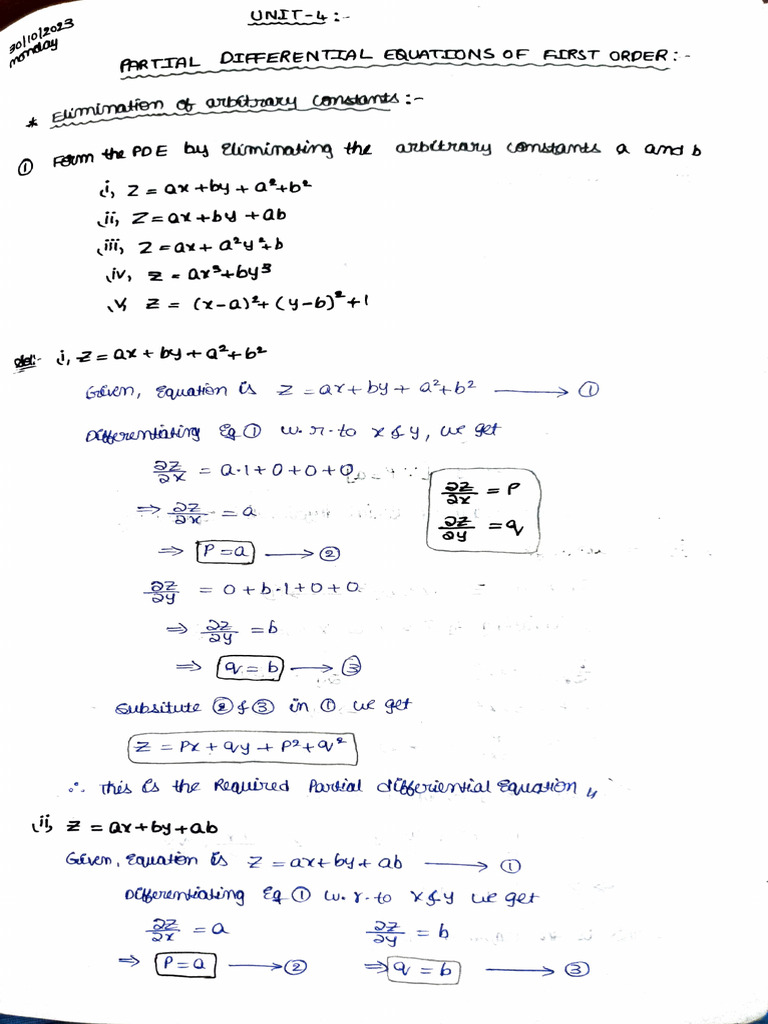 30/10/2023
monday
UNIT-4:-
PARTIAL DIFFERENTIAL EQUATIONS OF FIRST ORDER:-
* Elimination of arbitrary constants:-
① Form the PDE by Eliminating the arbitrary constants a and b
i, Z = ax+by+a²+b²
ii, Z = ax+by+ab
iii, Z = ax+a²y²+b
iv, Z = ax³+by³
v, Z = (x-a)²+(y-b)²+1
Sol:- i, Z = ax+by+a²+b²
Given, Equation is Z = ax+by+a²+b² ⟶ ①
Differentiating Eq ① w.r.to x & y, we get
∂Z/∂x = a·1+0+0+0
⇒ ∂Z/∂x = a
⇒ P = a ⟶ ②
∂Z/∂x = P
∂Z/∂y = q
∂Z/∂y = 0+b·1+0+0
⇒ ∂Z/∂y = b
⇒ q = b ⟶ ③
Subsitute ② & ③ in ① we get
Z = Px+qy+P²+q²
∴ This is the Required Partial Differiential Equation
ii, Z = ax+by+ab
Given, Equation is Z = ax+by+ab ⟶ ①
Differentiating Eq ① w.r.to x & y we get
∂Z/∂x = a ∂Z/∂y = b
⇒ P = a ⟶ ② ⇒ q = b ⟶ ③